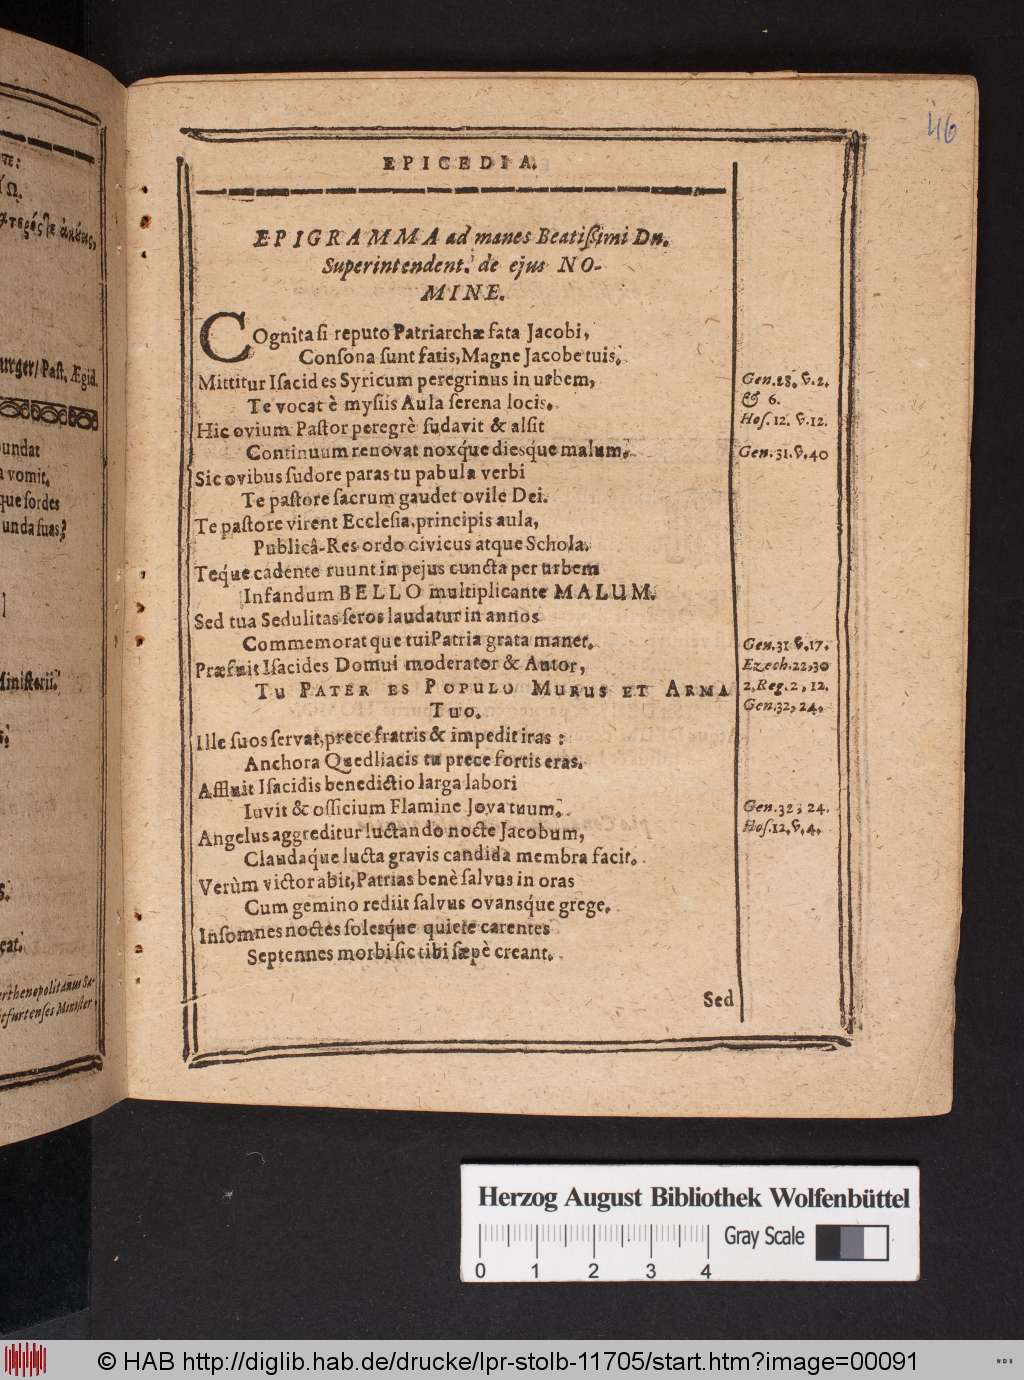 VE:
ΥΩ.
urger/ Past. Ægid.
oundat
a vomit.
que sordes
unda suas?
]
Ministerii.
s.
çat.
erthenopolitanus Sa-
iefurtenses Minister
46
EPICEDIA.
EPIGRAMMA ad manes Beatißimi Dn.
Superintendent. de ejus NO-
MINE.
COgnita si reputo Patriarchæ fata Jacobi,
Consona sunt fatis, Magne Jacobe tuis.
Mittitur Isacides Syricum peregrinus in urbem,
Gen. 28. v. 2.
Te vocat è mysiis Aula serena locis.
& 6.
Hic ovium Pastor peregrè sudavit & alsit
Hos. 12. v. 12.
Continuum renovat noxq́ue diesque malum.
Gen. 31. v. 40
Sic ovibus sudore paras tu pabula verbi
Te pastore sacrum gaudet ovile Dei.
Te pastore virent Ecclesia, principis aula,
Publicâ-Res ordo civicus atque Schola.
Teq́ue cadente ruunt in pejus cuncta per urbem
Infandum BELLO multiplicante MALUM.
Sed tua Sedulitas seros laudatur in annos
Commemorat que tui Patria grata manet.
Gen. 31 v. 17.
Præfuit Isacides Domui moderator & Autor,
Ezech. 22, 30
Tu Pater es Populo Murus et Arma
2. Reg. 2, 12.
Tuo.
Gen. 32, 24.
Ille suos servat, prece fratris & impedit iras:
Anchora Quedliacis tu prece fortis eras.
Affluit Isacidis benedictio larga labori
Iuvit & officium Flamine Jova tuum.
Gen. 32, 24.
Angelus aggreditur luctando nocte Jacobum,
Hos. 12. v. 4.
Claudaq́ue lucta gravis candida membra facit.
Verùm victor abit, Patrias benè salvus in oras
Cum gemino rediit salvus ovansq́ue grege.
Insomnes noctes solesq́ue quiete carentes
Septennes morbi sic tibi sæpè creant.
Sed
Herzog August Bibliothek Wolfenbüttel
Gray Scale
0 1 2 3 4
© HAB http://diglib.hab.de/drucke/lpr-stolb-11705/start.htm?image=00091
WDB